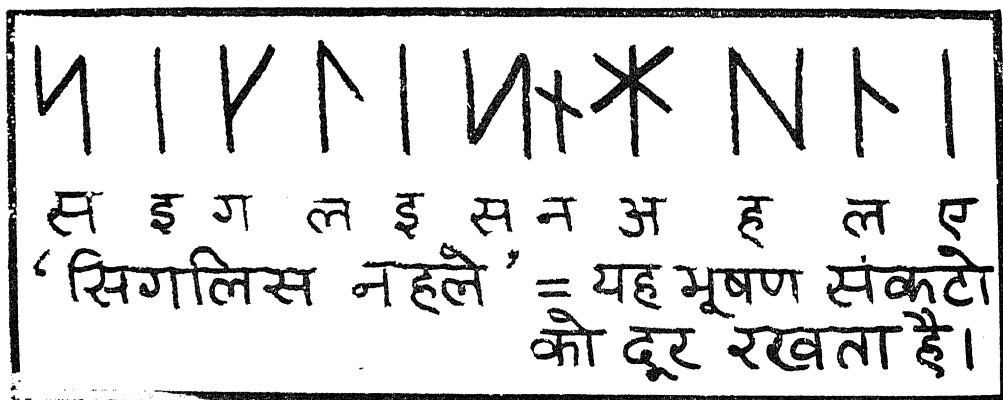 ᛋ ᛁ ᚴ ᛚ ᛁ ᛋ ᚾ ᛡ ᚺ ᚿ ᛁ
स इ ग ल इ स न अ ह् ल ए
‘सिगलिस नहले’ = यह भूषण संकटो
को दूर रखता है।